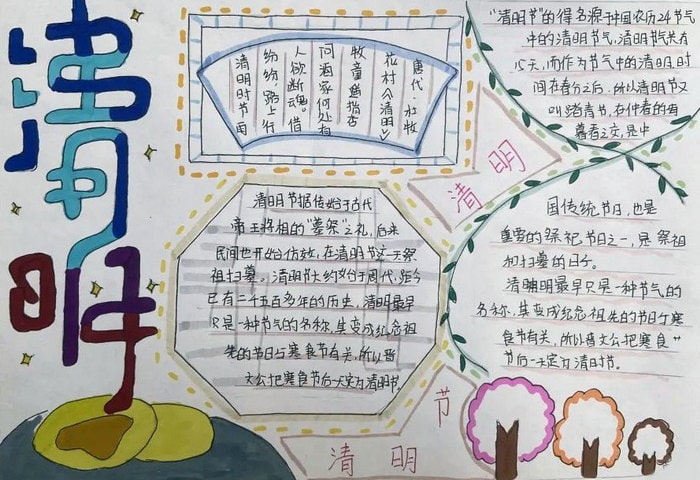 清明
清明时节雨
纷纷,路上行
人欲断魂。借
问酒家何处有
牧童遥指杏
花村《清明》
唐代-杜牧
“清明节”的得名源于中国农历24节气
中的清明节气,清明节气共有
15天,而作为节气中的清明,时
间在春分之后。所以清明节又
叫踏青节,在仲春的与
暮春之交,是中
清明
国传统节日,也是
重要的祭祀节日之一,是祭祖
和扫墓的日子。
清明最早只是一种节气的
名称,其变成纪念祖先的节日与寒
食节有关,所以晋文公把寒食
节后一天定为清明节。
清明节据传始于古代
帝王将相的“墓祭”之礼,后来
民间也开始仿效,在清明节这一天祭
祖扫墓。清明节大约始于周代,距今
已有二千五百多年的历史,清明最早
只是一种节气的名称,其变成纪念祖
先的节日与寒食节有关,所以晋
文公把寒食节后一天定为清明节
清明节